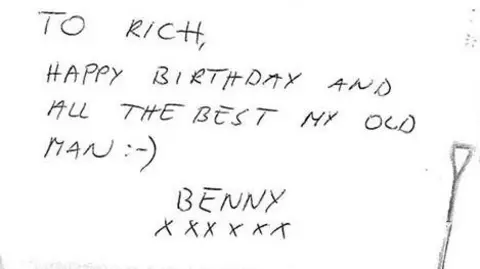 TO RICH,
HAPPY BIRTHDAY AND
ALL THE BEST MY OLD
MAN :-)
BENNY
X X X X X X